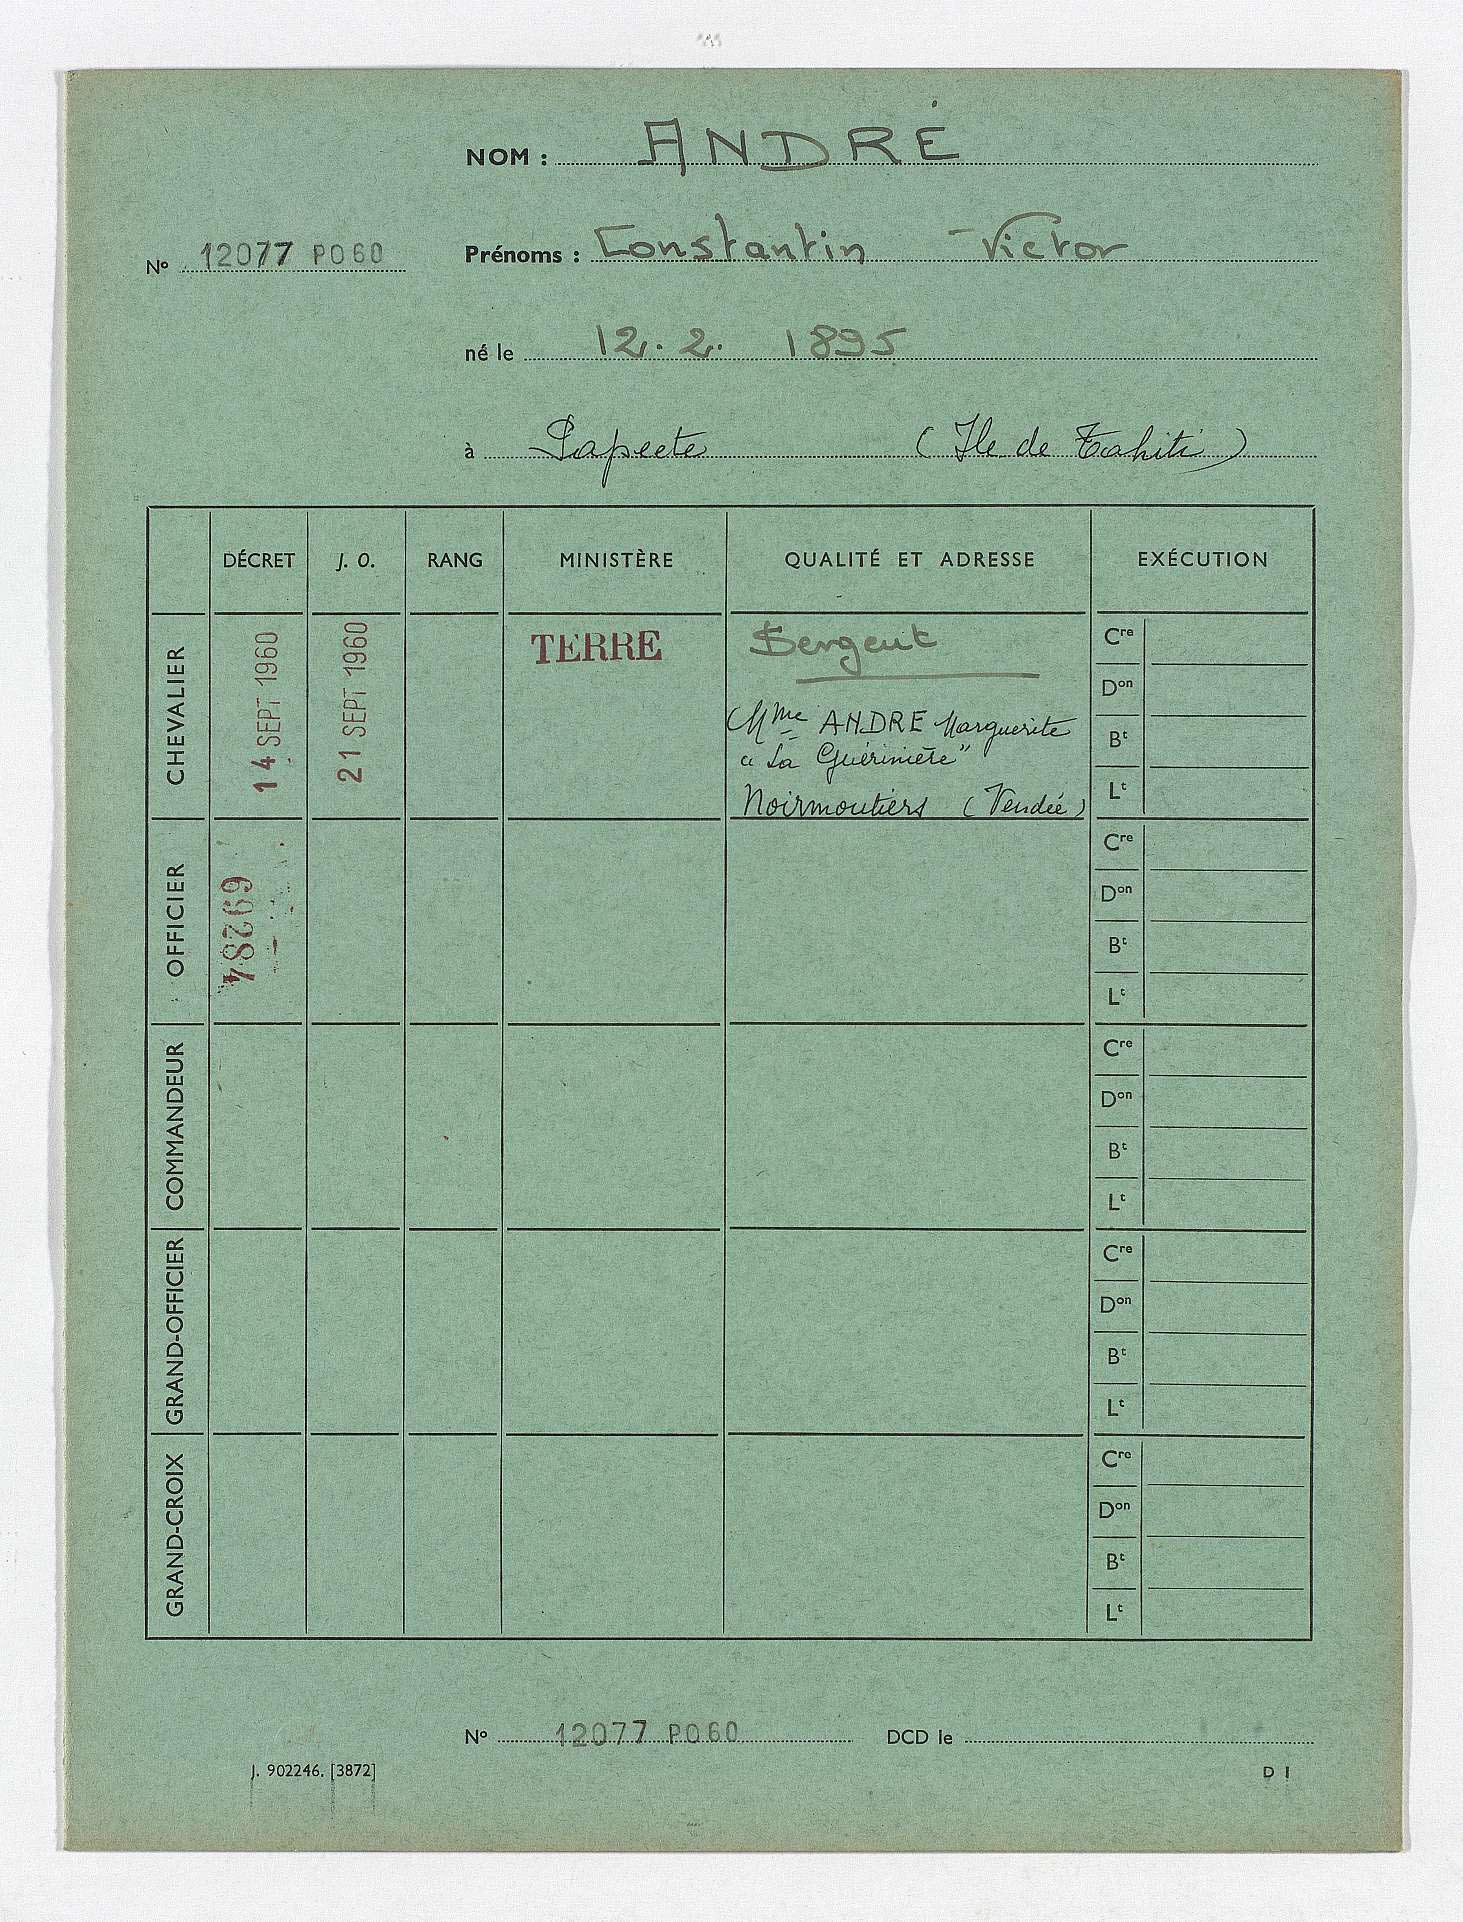 NOM : ANDRÉ
Nº 12077 PO60
Prénoms : Constantin Victor
né le 12.2. 1895
à Papeete (Ile de Tahiti)
DÉCRET J. O. RANG MINISTÈRE QUALITÉ ET ADRESSE EXÉCUTION
CHEVALIER
14 SEPT 1960
21 SEPT 1960
TERRE
Sergent
Mme ANDRE Marguerite
"La Guérinière"
Noirmoutiers (Vendée)
Cre
Don
Bt
Lt
OFFICIER
69284
Cre
Don
Bt
Lt
COMMANDEUR
Cre
Don
Bt
Lt
GRAND-OFFICIER
Cre
Don
Bt
Lt
GRAND-CROIX
Cre
Don
Bt
Lt
Nº 12077 PO60 DCD le
J. 902246. [3872] D I